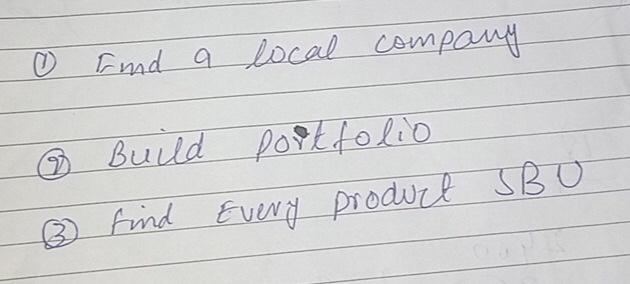 ① Find a local company
② Build portfolio
③ find Every product SBU